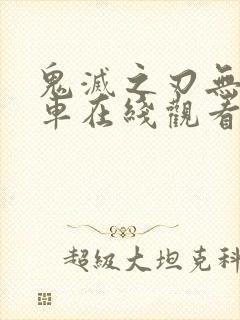 鬼滅之刃無
車在綫觀看
超級大坦克科